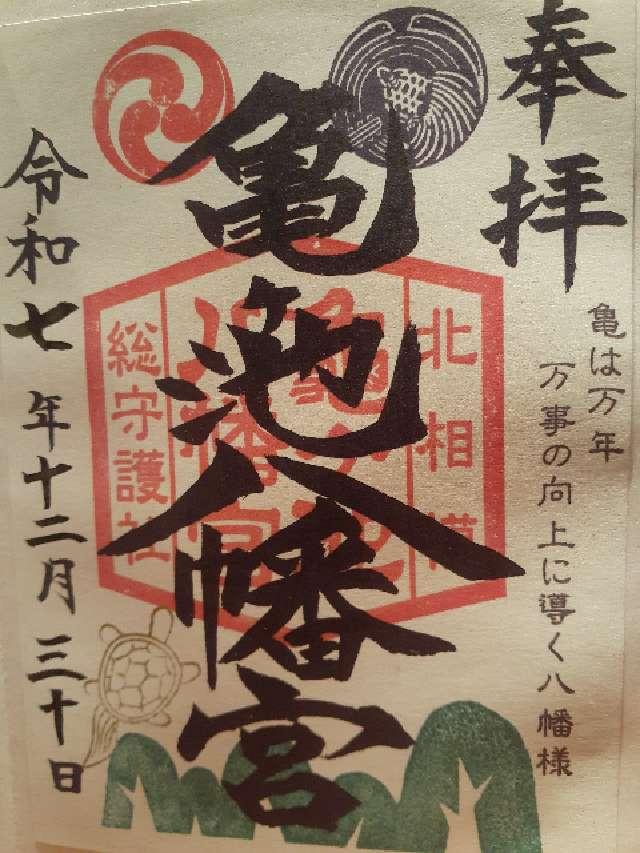 奉拝
亀は万年
万事の向上に導く八幡様
亀池八幡宮
北相模
亀の池
八幡宮
総守護社
令和七年十二月三十日